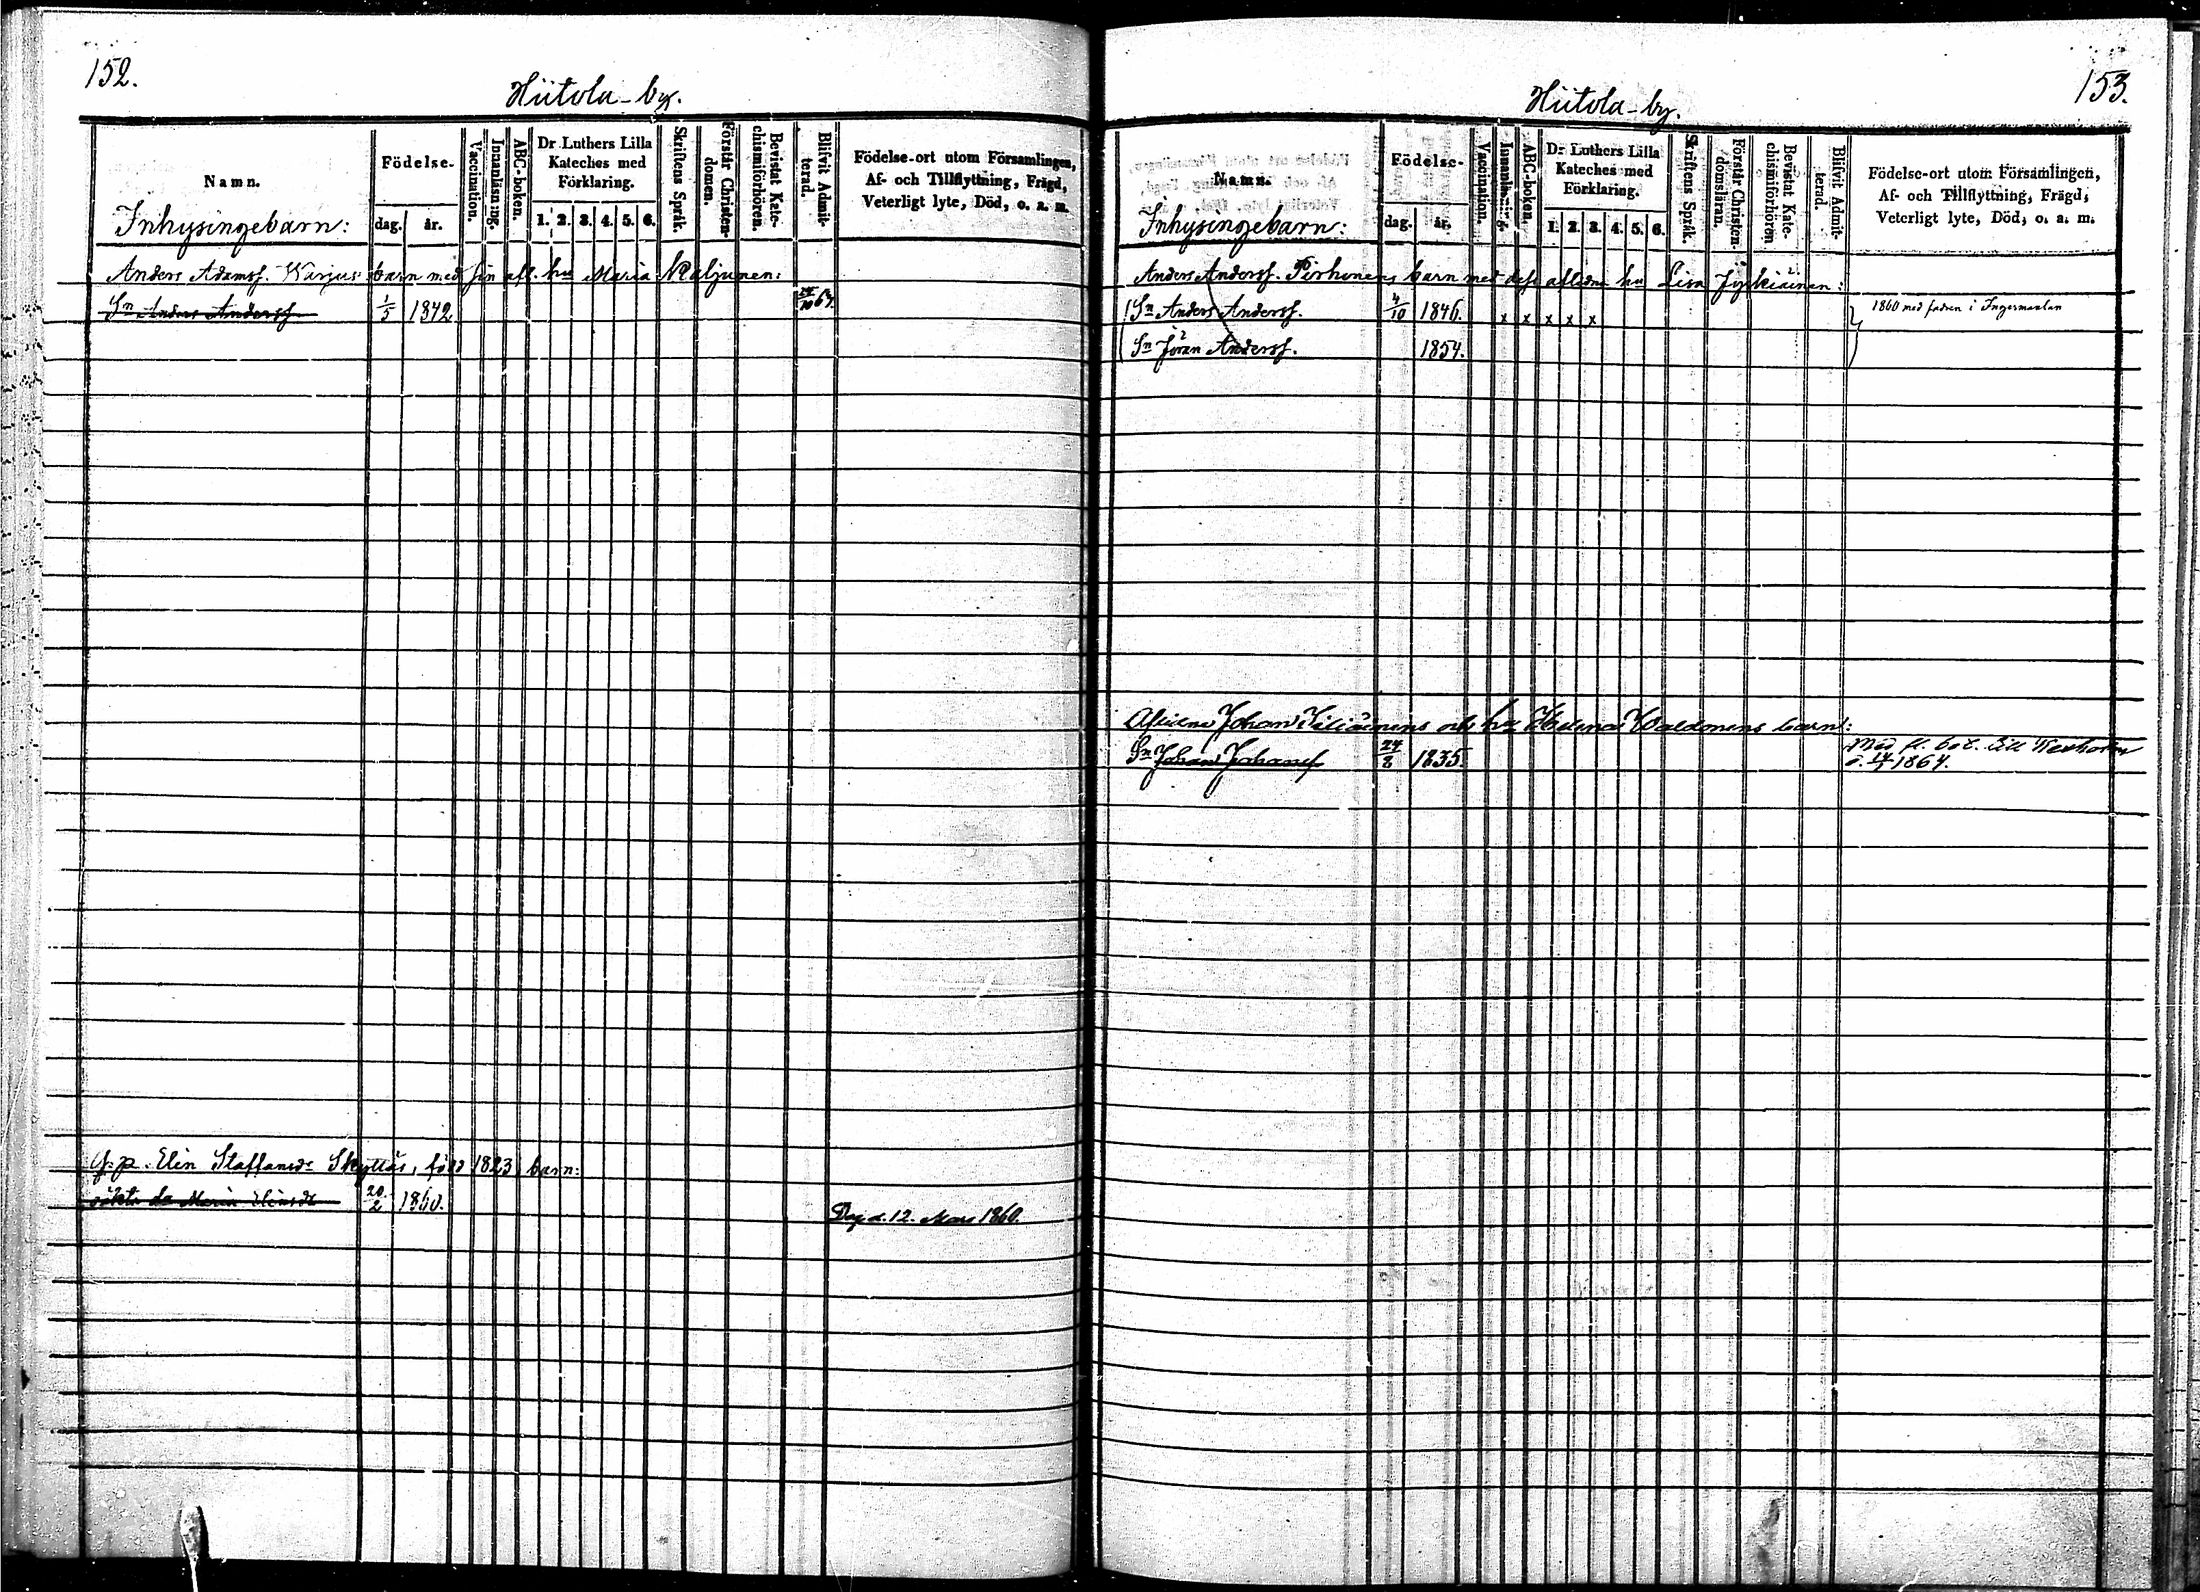 152.
Hiitola-by.
Namn.
Inhysingebarn:
Födelse-
dag. år.
Vaccination.
Innanläsning.
ABC-boken.
Dr Luthers Lilla
Kateches med
Förklaring.
1. 2. 3. 4. 5. 6.
Skriftens Språk.
Förstår Christen-
domen.
Bevistat Kate-
chismiförhören.
Blifvit Admit-
terad.
Födelse-ort utom Församlingen,
Af- och Tillflyttning, Frägd,
Veterligt lyte, Död, o. a. m.
Anders Adamss. Warjus barn med sin afl. hu Maria Maljunen:
Sn Anders Anderss. 1/5 1842 67.
Elin Staffansdr född 1823, barn:
oäkta dr Maria 20/2 1860.
Död d. 12. Mars 1860.
153.
Hiitola-by.
Namn.
Inhysingebarn:
Födelse-
dag. år.
Vaccination.
Innanläsning.
ABC-boken.
Dr Luthers Lilla
Kateches med
Förklaring.
1. 2. 3. 4. 5. 6.
Skriftens Språk.
Förstår Christen-
domsläran.
Bevistat Kate-
chismiförhören
Blifvit Admit-
terad.
Födelse-ort utom Församlingen,
Af- och Tillflyttning, Frägd,
Veterligt lyte, Död, o. a. m.
Anders Anderss. Pirhonens barn med dess aflidna hu Lisa Jyrkiäinen:
Sn Anders Anderss. 4/10 1846. x x x x x 1860 med fadren i Ingermanlan
Sn Jöran Anderss. 1854.
Aflidne Johan och hu Helena Waldonens barn:
Sn Johan Johanss 1835. Med fl. bet. till
1864.